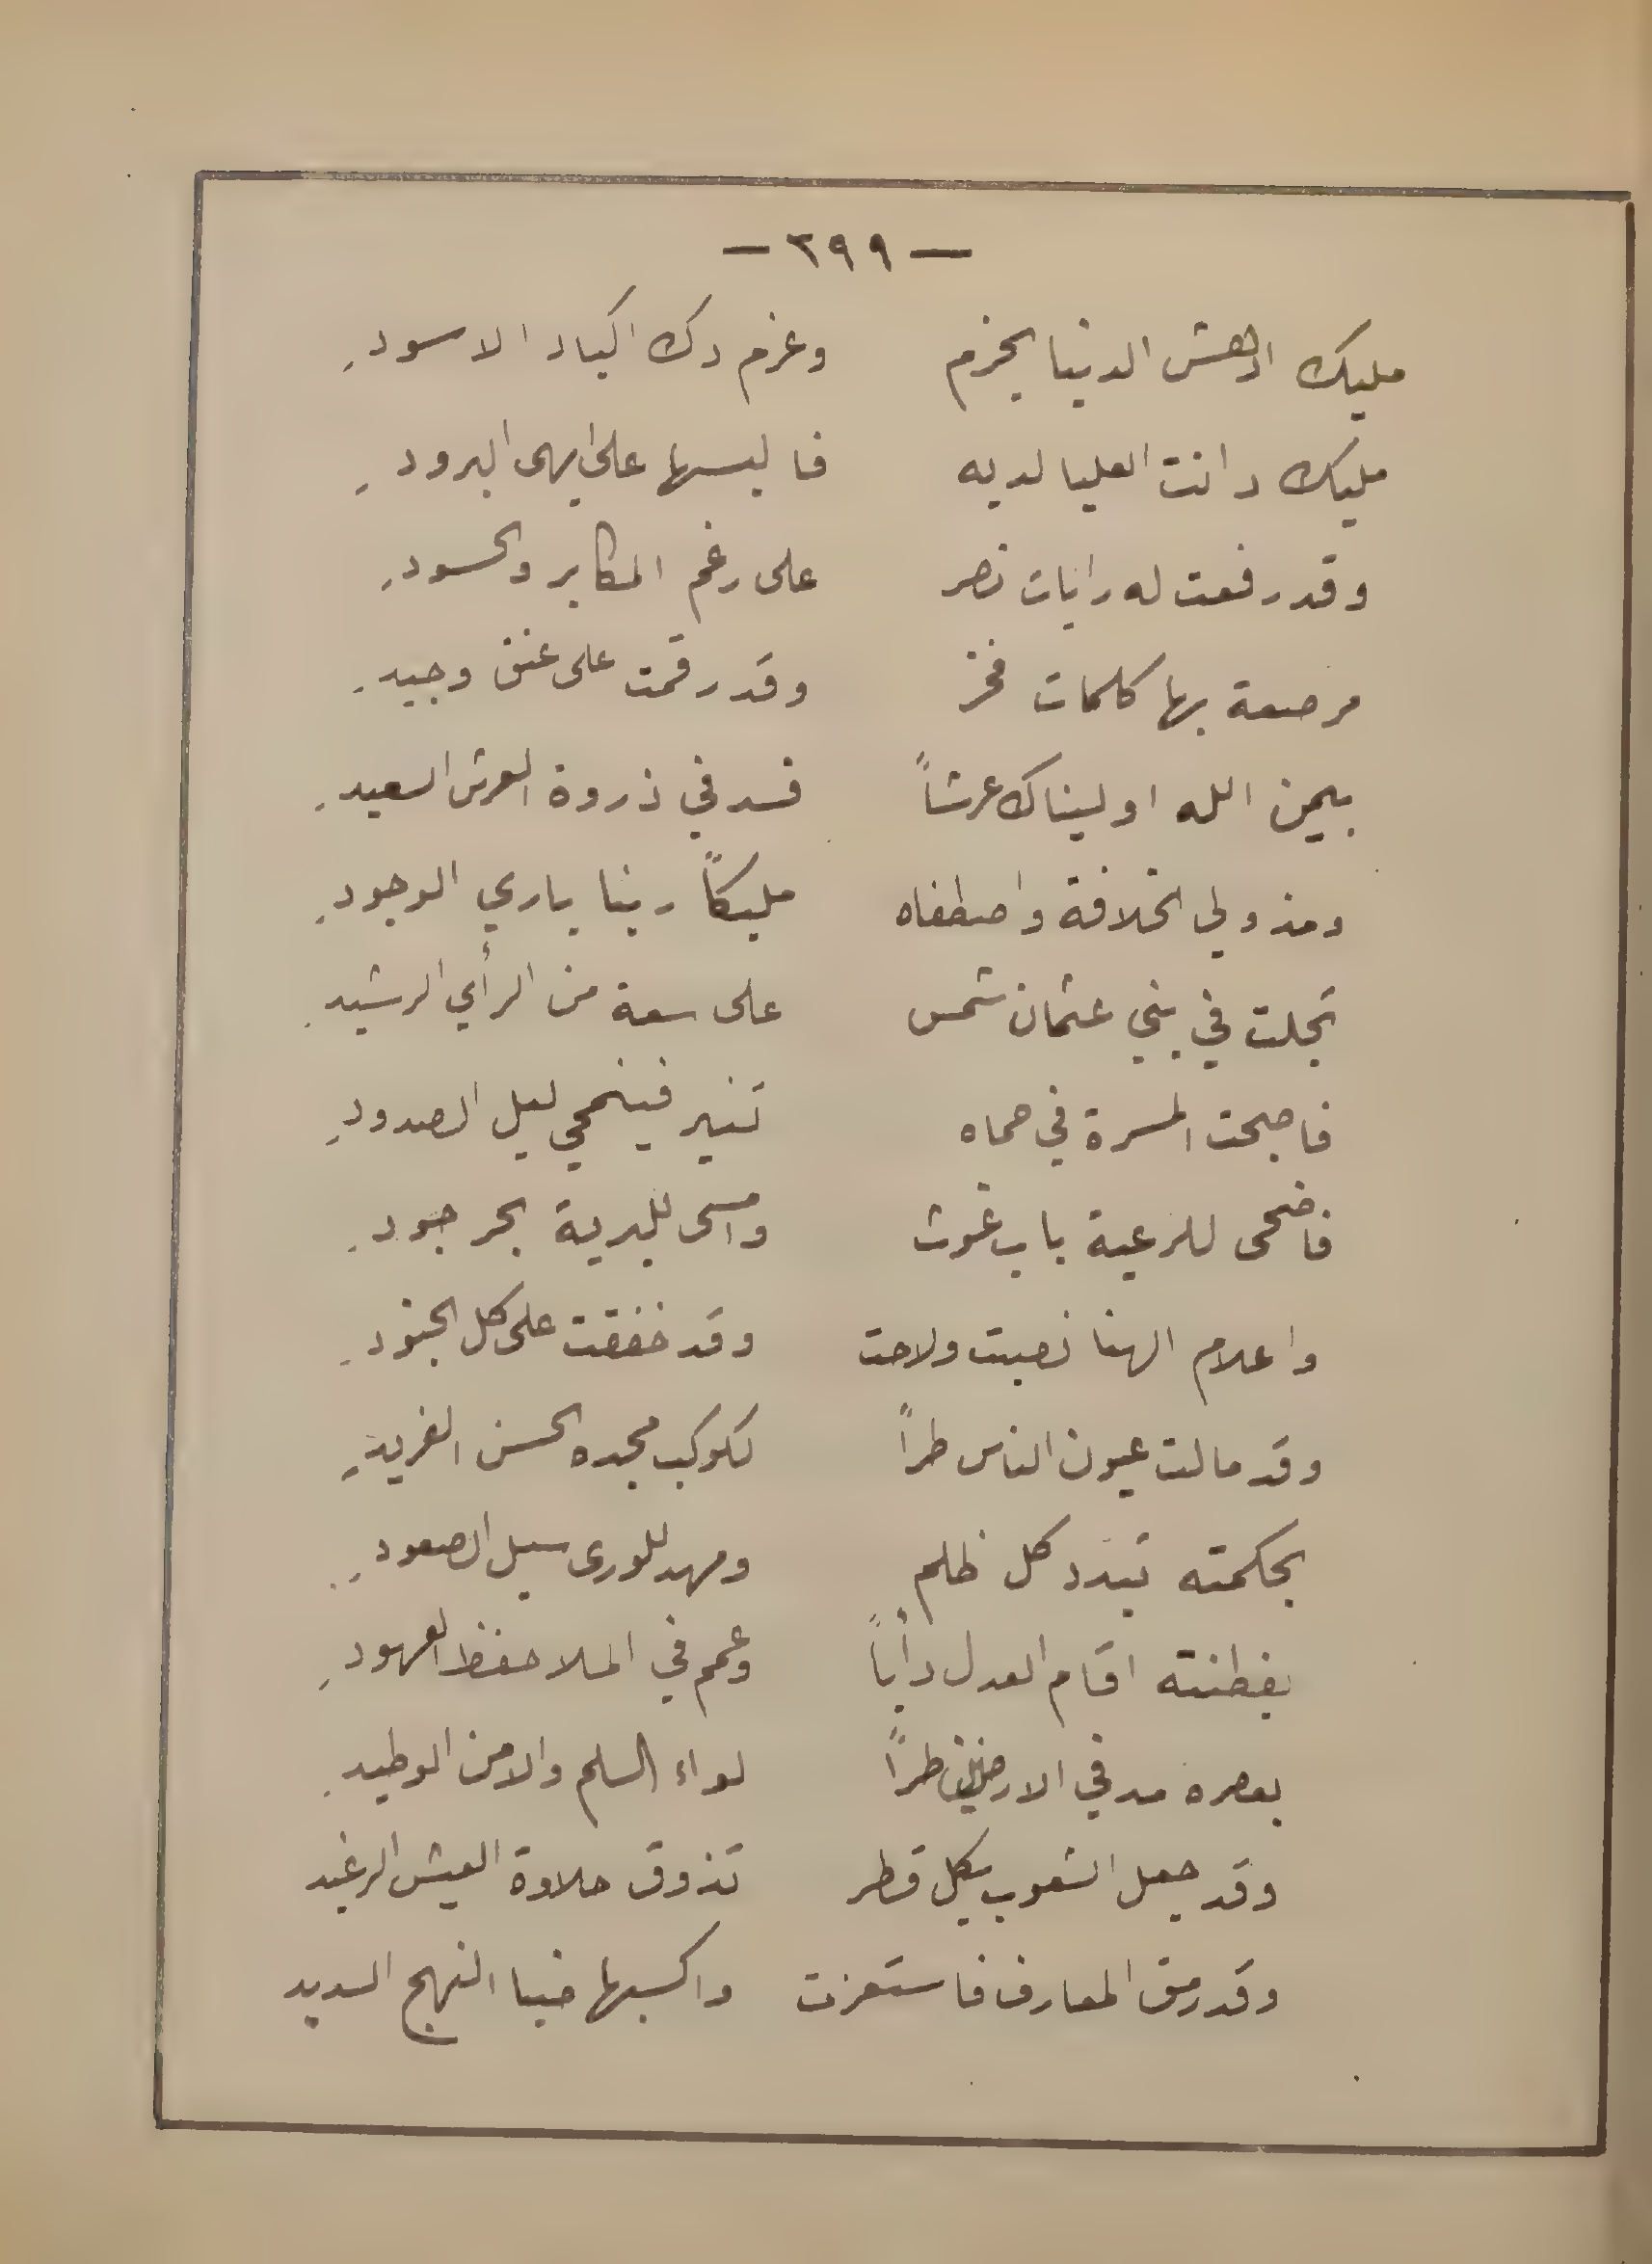 — ٣٩٩ —
مليك ادهش الدنيا بحزم وعزم دك اكباد الاسودِ
مليك دانت العليا لديه فالبسها على ابهى البرودِ
وقد رفعت له رايات نصر على رغم المكابر والحسودِ
مرصعة بها كلمات فخر وقد رقمت على عنق وجيدِ
بيمن الله اوليناك عرشاً فسد في ذروة العرش السعيدِ
ومذ ولي الخلافة واصطفاه مليكاً ربنا باري الوجودِ
تجلت في بني عثمان شمس على سعة من الرأي الرشيدِ
فاصبحت المسرة في حماه تنير فينمحي ليل الصدودِ
فاضحى للرعية باب غوث وامسى للبرية بحر جودِ
واعلام الهنا نصبت ولاحت وقد خفقت على كل الجنودِ
وقد مالت عيون الناس طراً لكوكب مجده الحسن الفريدِ
بحكمته تبدد كل ظلم ومهد للورى سبل الصعودِ
بفطنته اقام العدل دأباً وعمم في الملا حفظ العهودِ
بعصره مد في الارضين طراً لواء السلم والامن الوطيدِ
وقد جعل الشعوب بكل قطر تذوق حلاوة العيش الرغيد
وقد رمق المعارف فاستعزت واكسبها ضيا النهج السديد